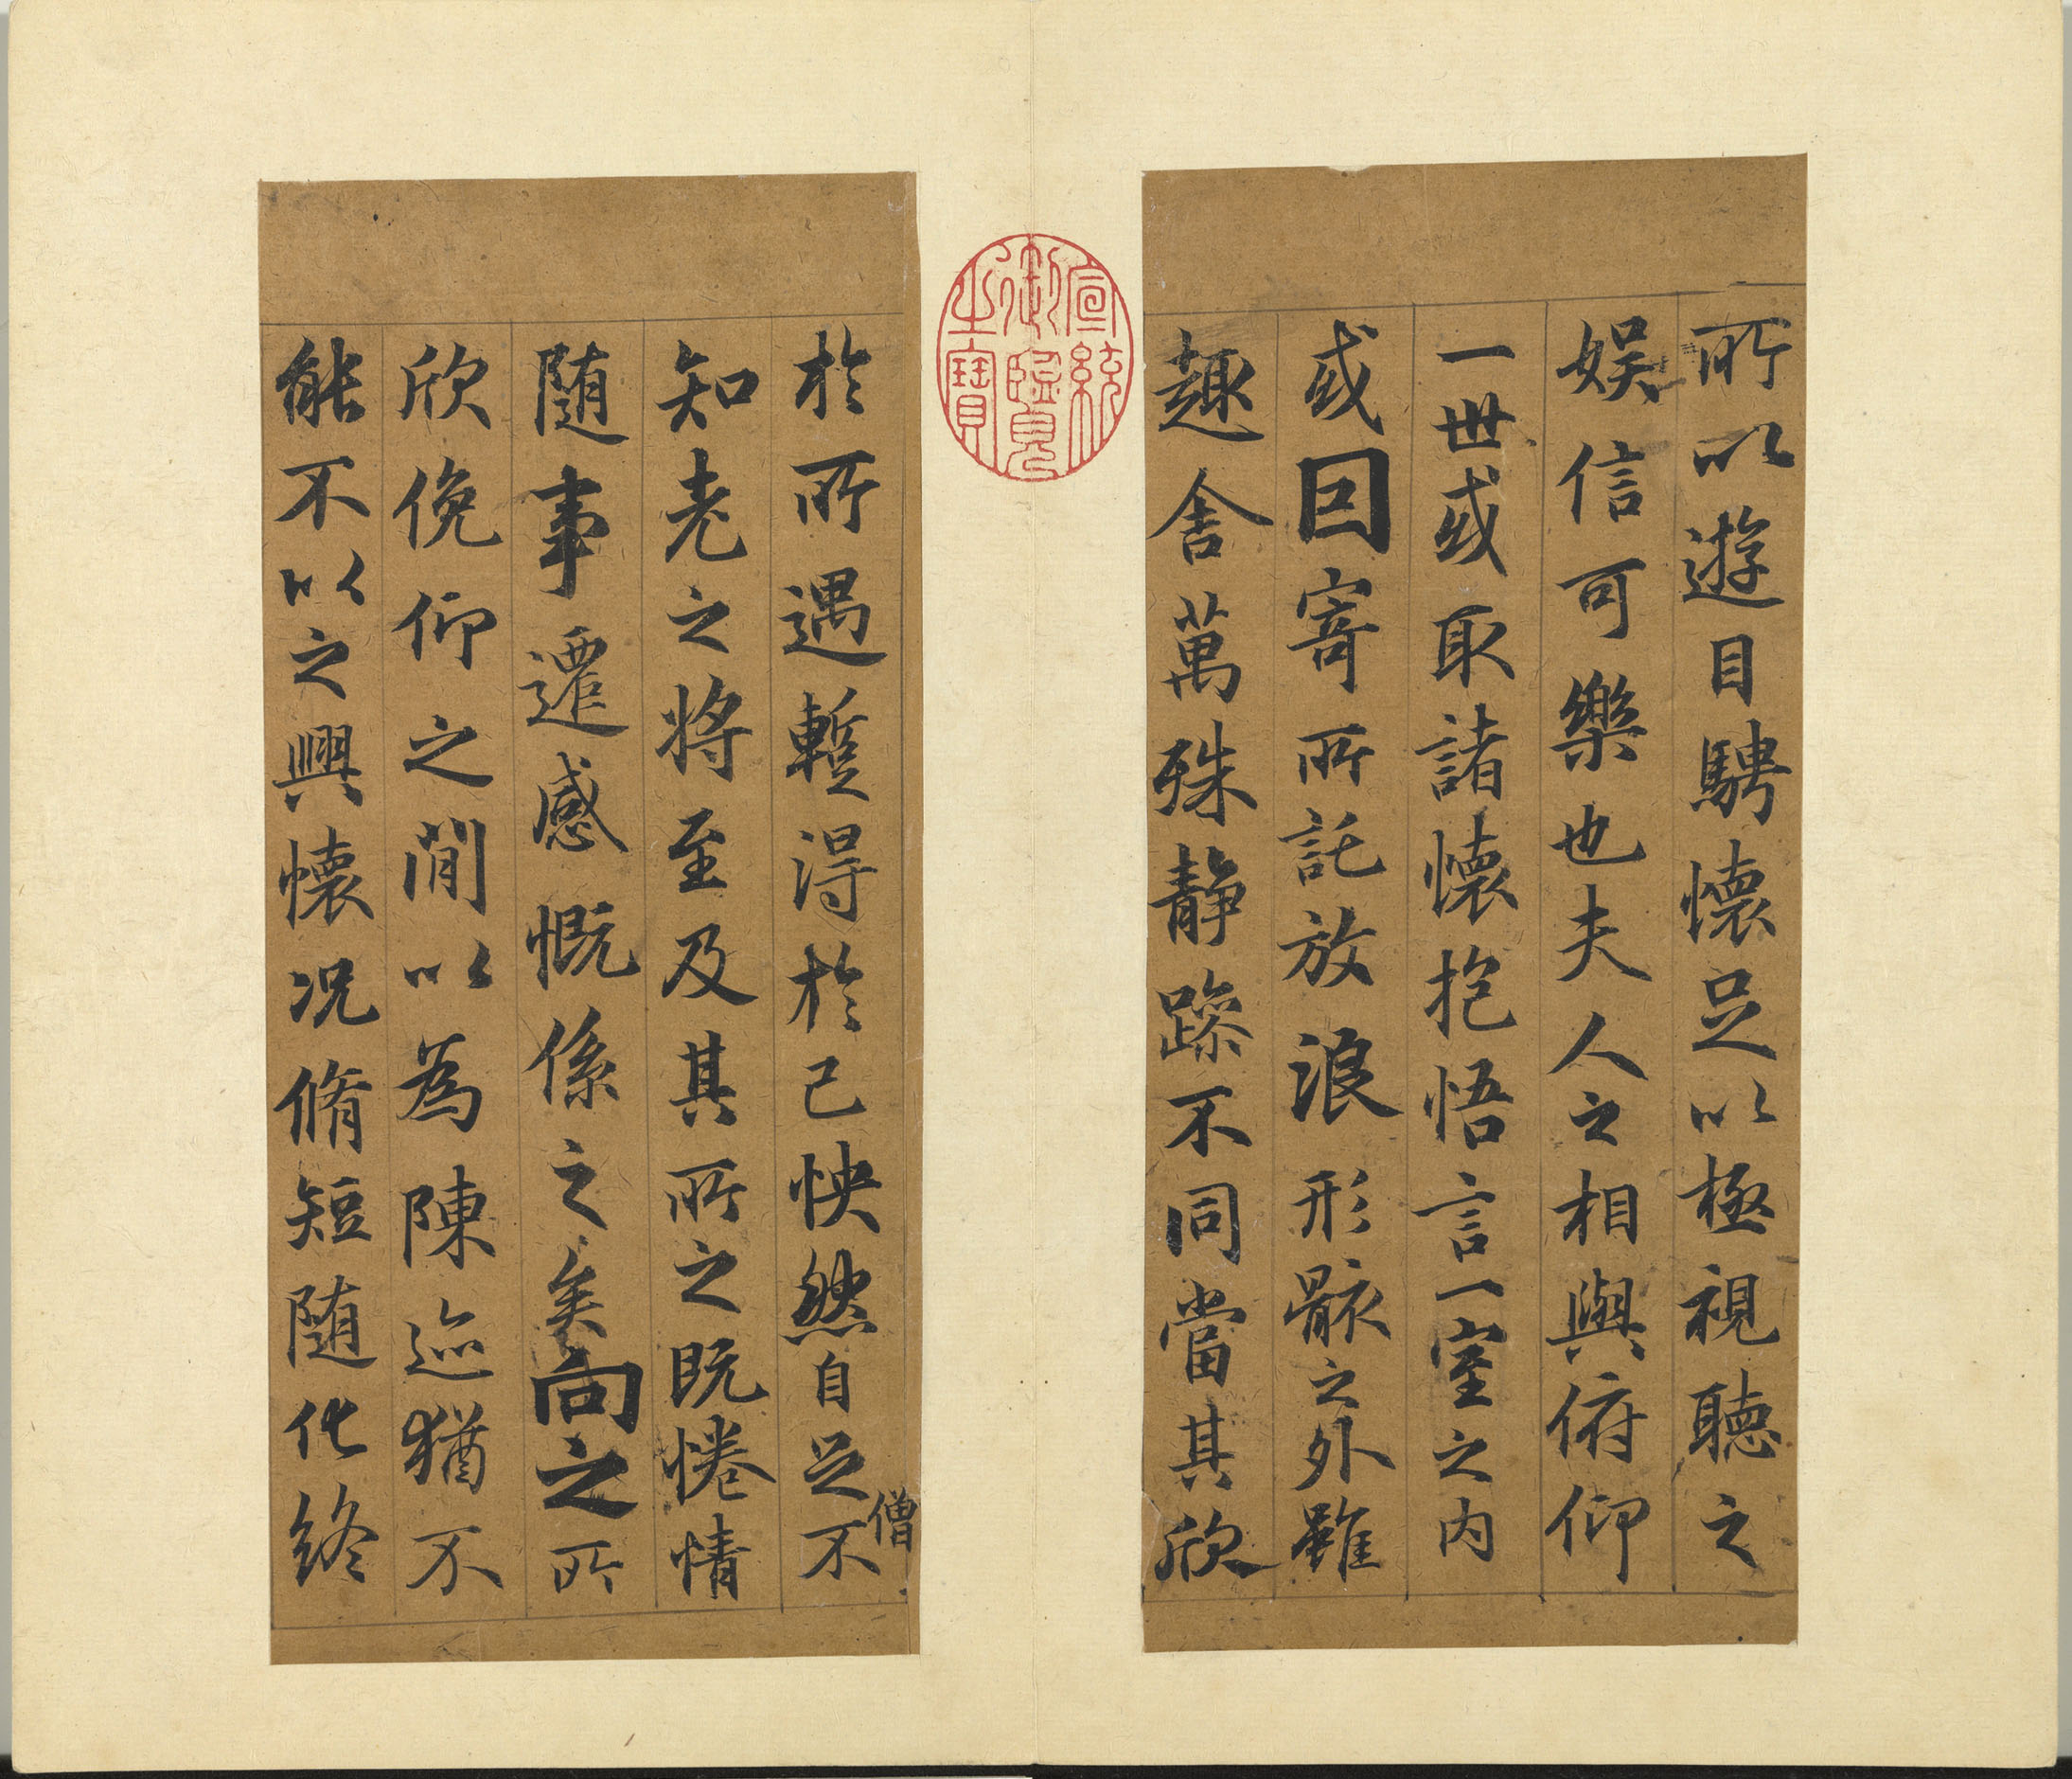 所以遊目騁懷足以極視聽之
娛信可樂也夫人之相與俯仰
一世或取諸懷抱悟言一室之內
或因寄所託放浪形骸之外雖
趣舍萬殊靜躁不同當其欣
宣統
御覽
之寶
於所遇蹔得於己怏然自足不
僧
知老之將至及其所之既惓情
随事遷感慨係之矣向之所
欣俛仰之閒以為陳迹猶不
能不以之興懷况脩短随化終